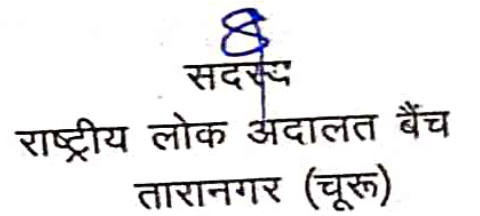 सदस्य
राष्ट्रीय लोक अदालत बैंच
तारानगर (चूरू)